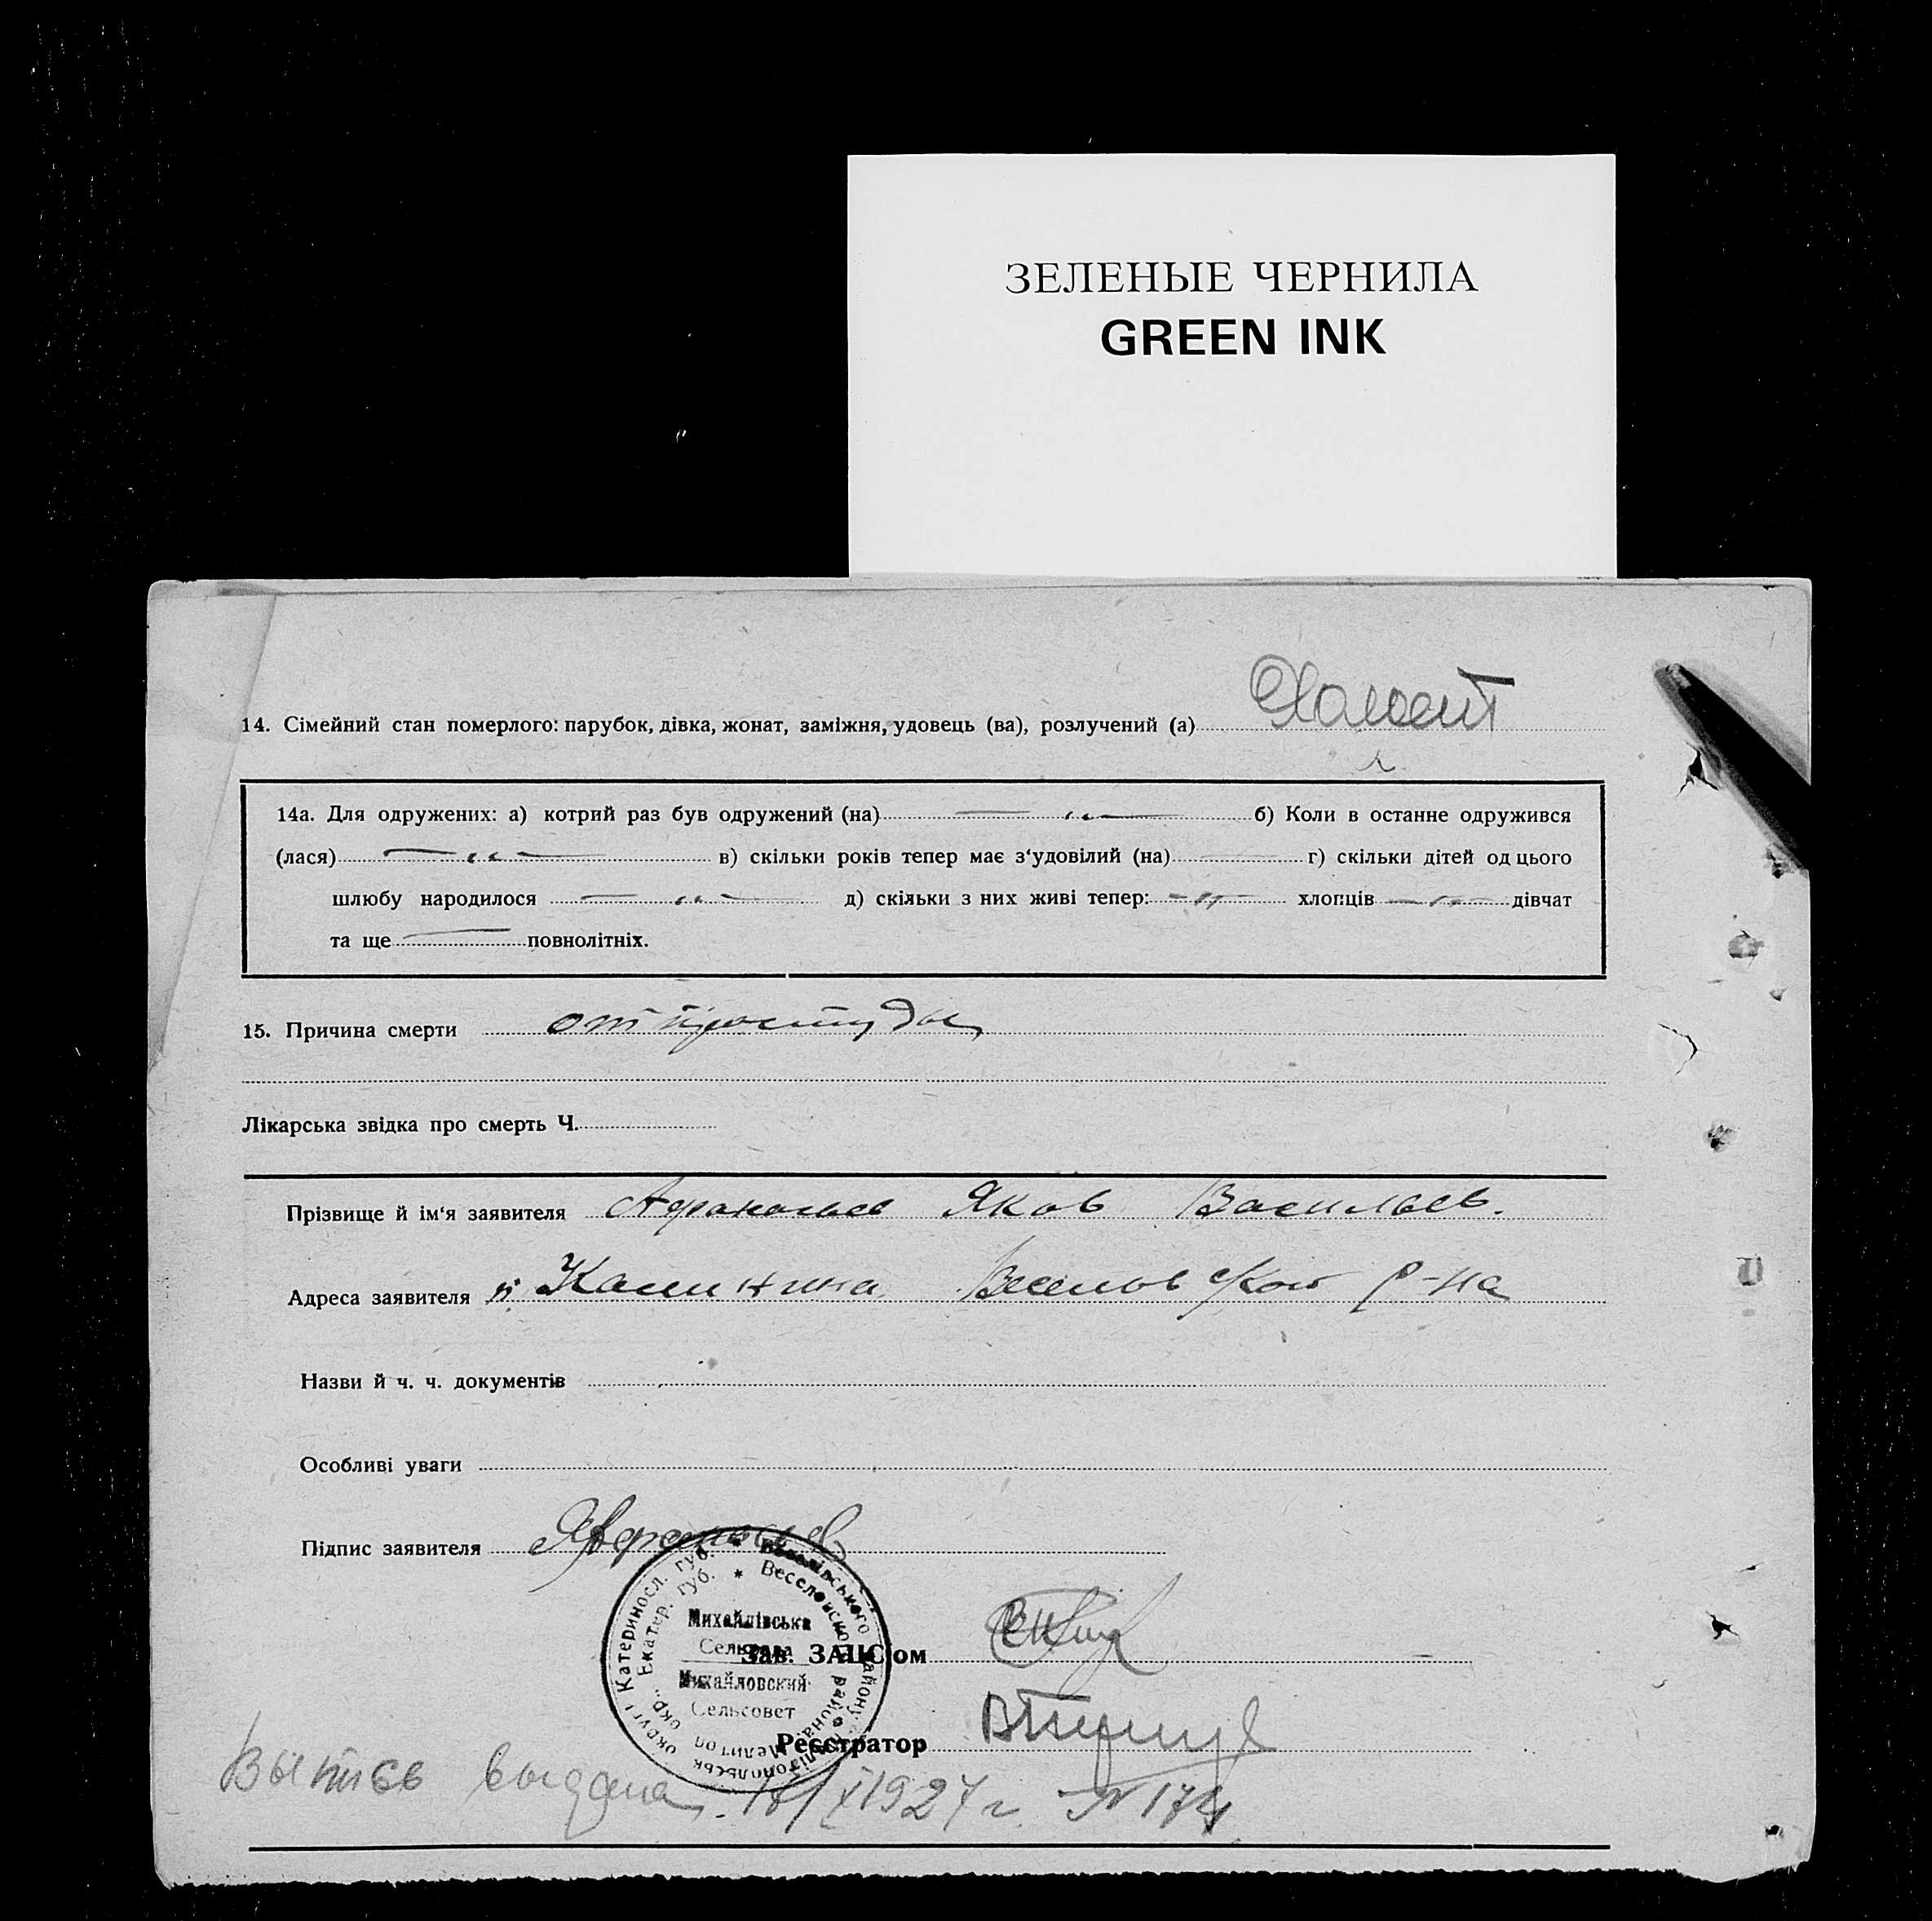 ЗЕЛЕНЫЕ ЧЕРНИЛА
GREEN INK
14. Сімейний стан померлого: парубок, дівка, жонат, заміжня, удовець (ва), розлучений (а)
14а. Для одружених: а) котрий раз був одружений (на) — „ — б) Коли в останне одружився
(лася) — „ — в) скільки років тепер має з‘удовілий (на) г) скільки дітей од цього
шлюбу народилося — „ — д) скільки з них живі тепер: — „ — хлопців — „ — дівчат
та ще — повнолітніх.
15. Причина смерти от простуды
Лікарська звідка про смерть Ч.
Прізвище й ім‘я заявителя Афанасьев Яков Васильев.
Адреса заявителя п. Калинина Веселовской р-на
Назви й ч. ч. документів
Особливі уваги
Підпис заявителя ЯАфанасьев
Веселівського району Мелітопольськ округи Катериносл. губ.
Веселовского района, Мелитоп окр., Екатер. губ. *
Михайлівська
Сельрада
Михайловский
Сельсовет
Зав. ЗАЦС‘ом
Реєстратор
Выпись выдана 1927 г. № 174